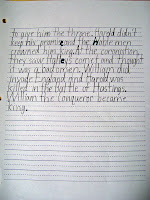 to give him the throne. Harold didn't
keep his promise and the Noble men
crowned him king. At the coronation,
they saw Halley's comet and thought
it was a bad omen. William did
invade England and Harold was
killed in the Battle of Hastings.
William the Conqueror became
king.